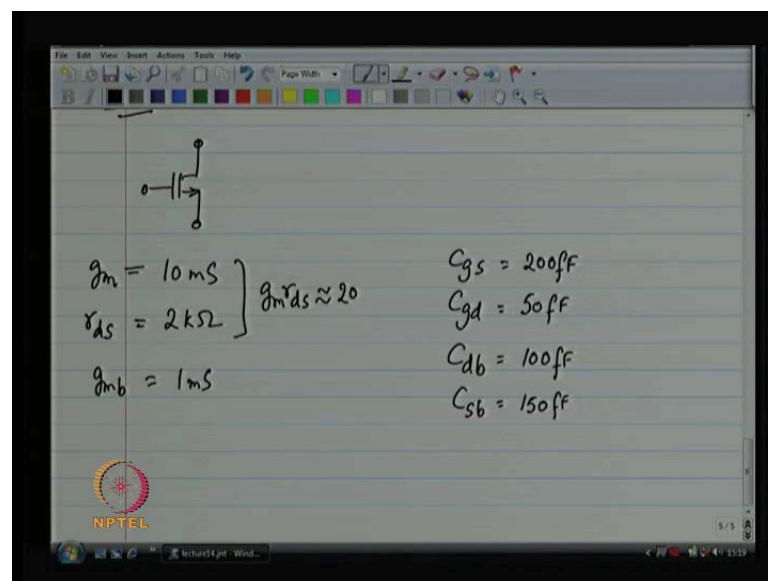 File Edit View Insert Actions Tools Help
Page Width
B I
gm = 10 mS
rds = 2 kΩ
gm rds ≈ 20
gmb = 1 mS
Cgs = 200 fF
Cgd = 50 fF
Cdb = 100 fF
Csb = 150 fF
NPTEL
5/5
lecture14.jnt - Wind...
15:19